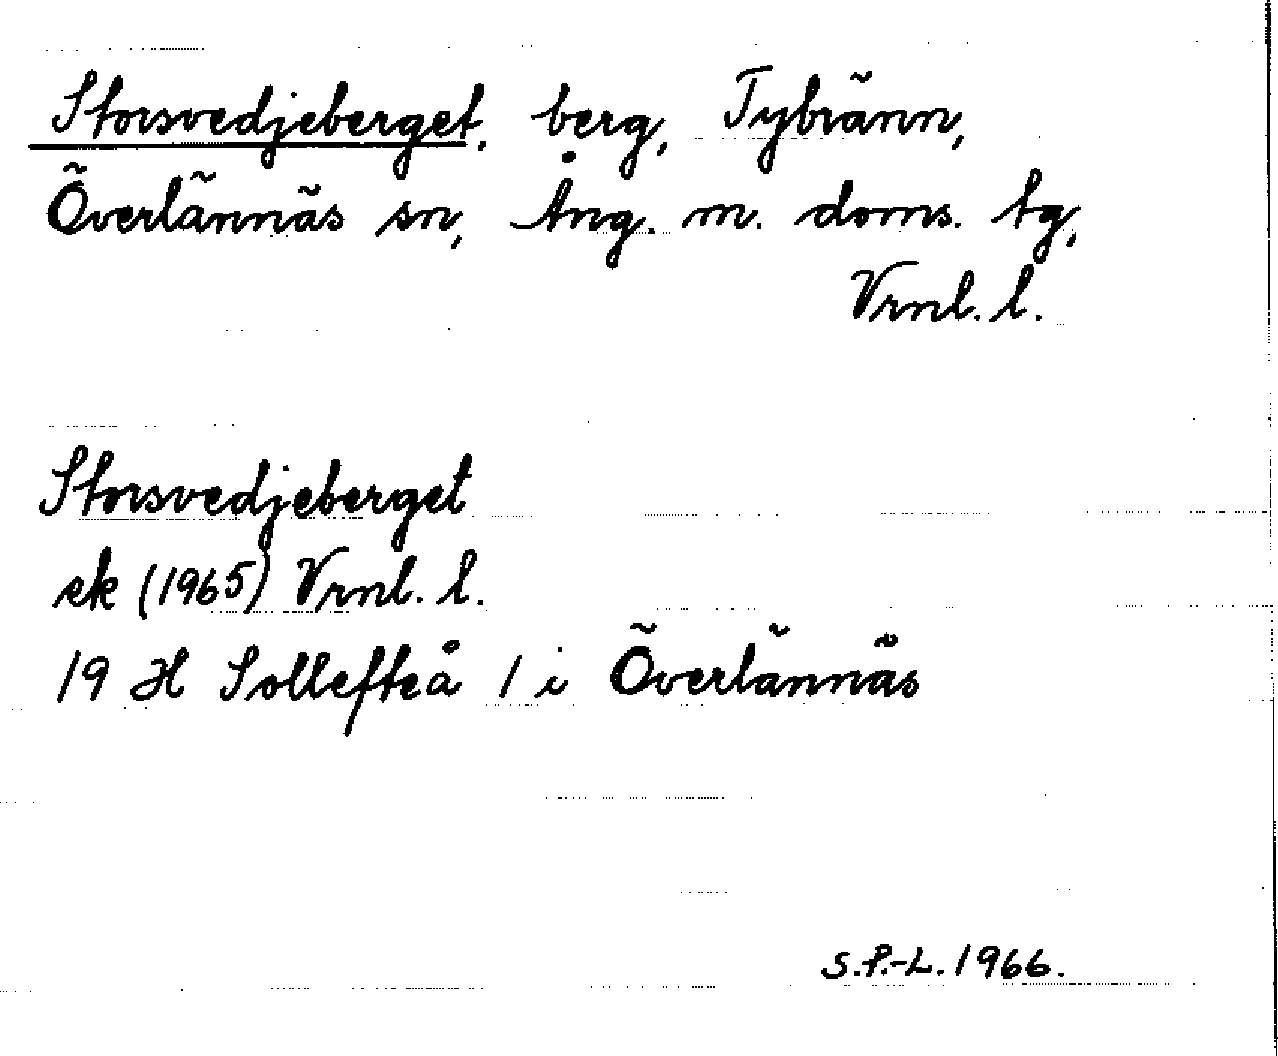 Storsvedjeberget, berg, Tybränn,
Överlännäs sn, Ång. m. doms. tg,
Vrnl. l.
Storsvedjeberget
ek (1965) Vrnl. l.
19 H Sollefteå 1 i Överlännäs
S.P.-L. 1966.